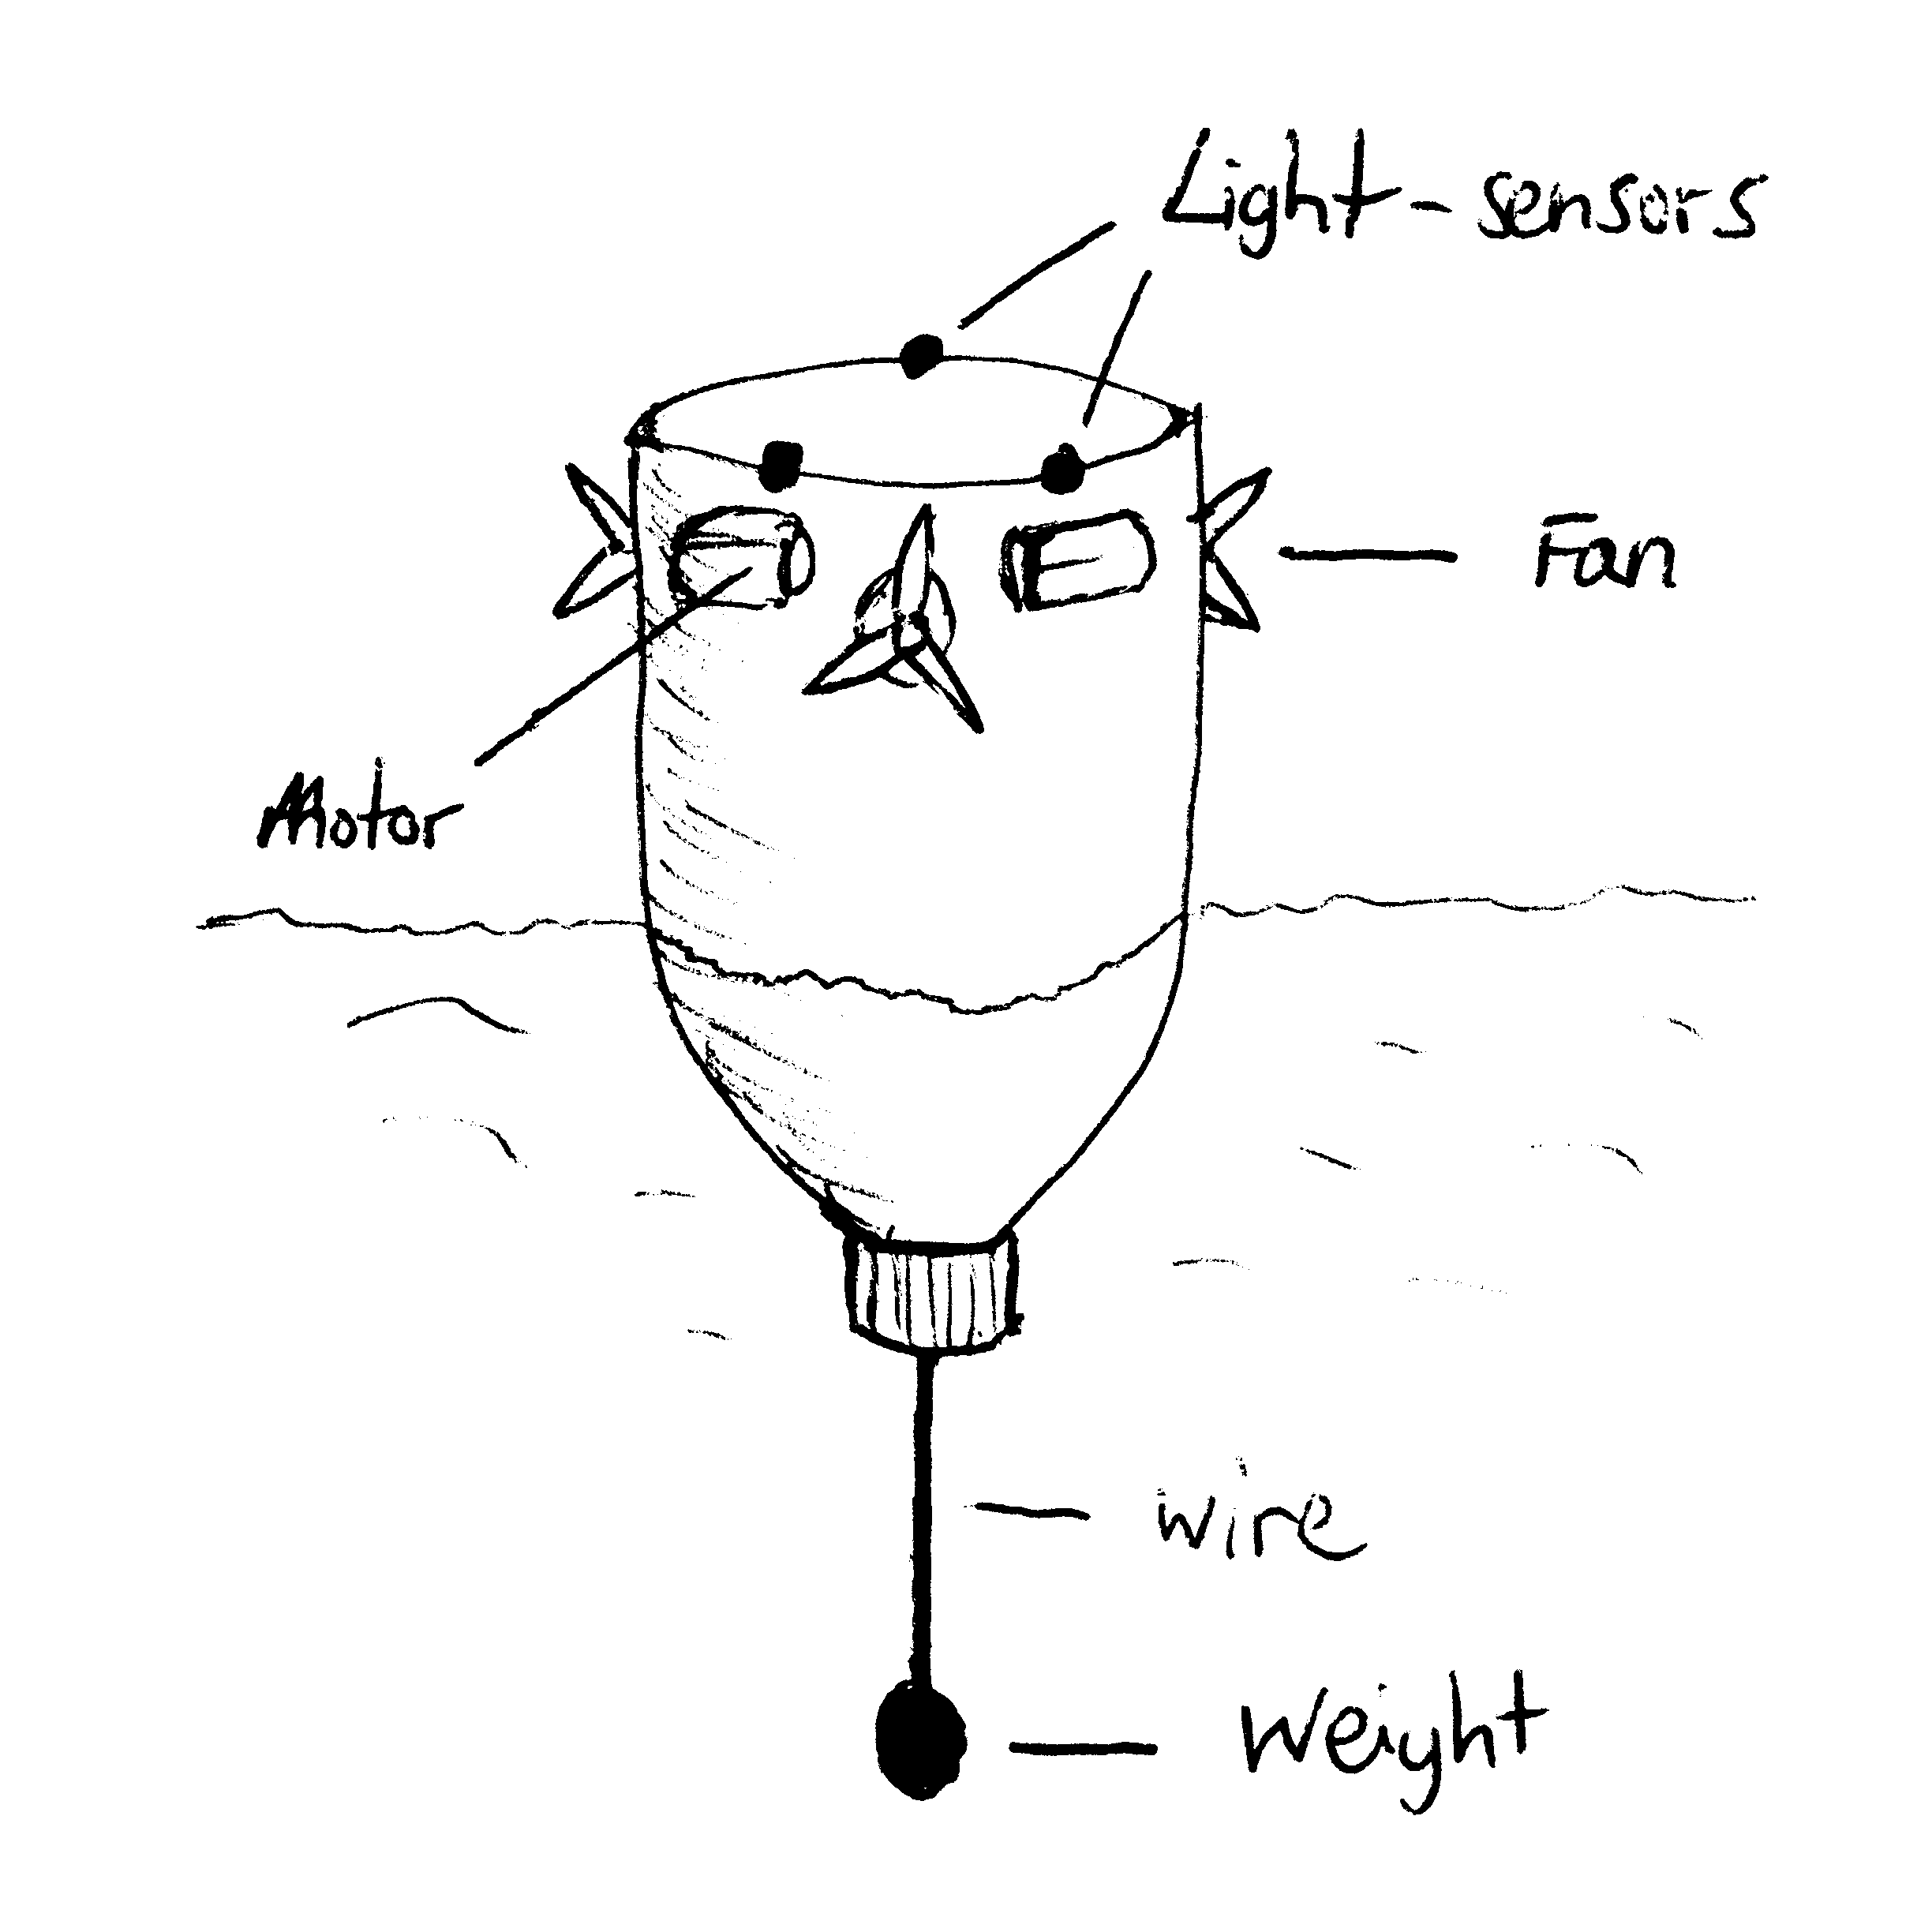 Light-sensors
Fan
Motor
wire
Weight